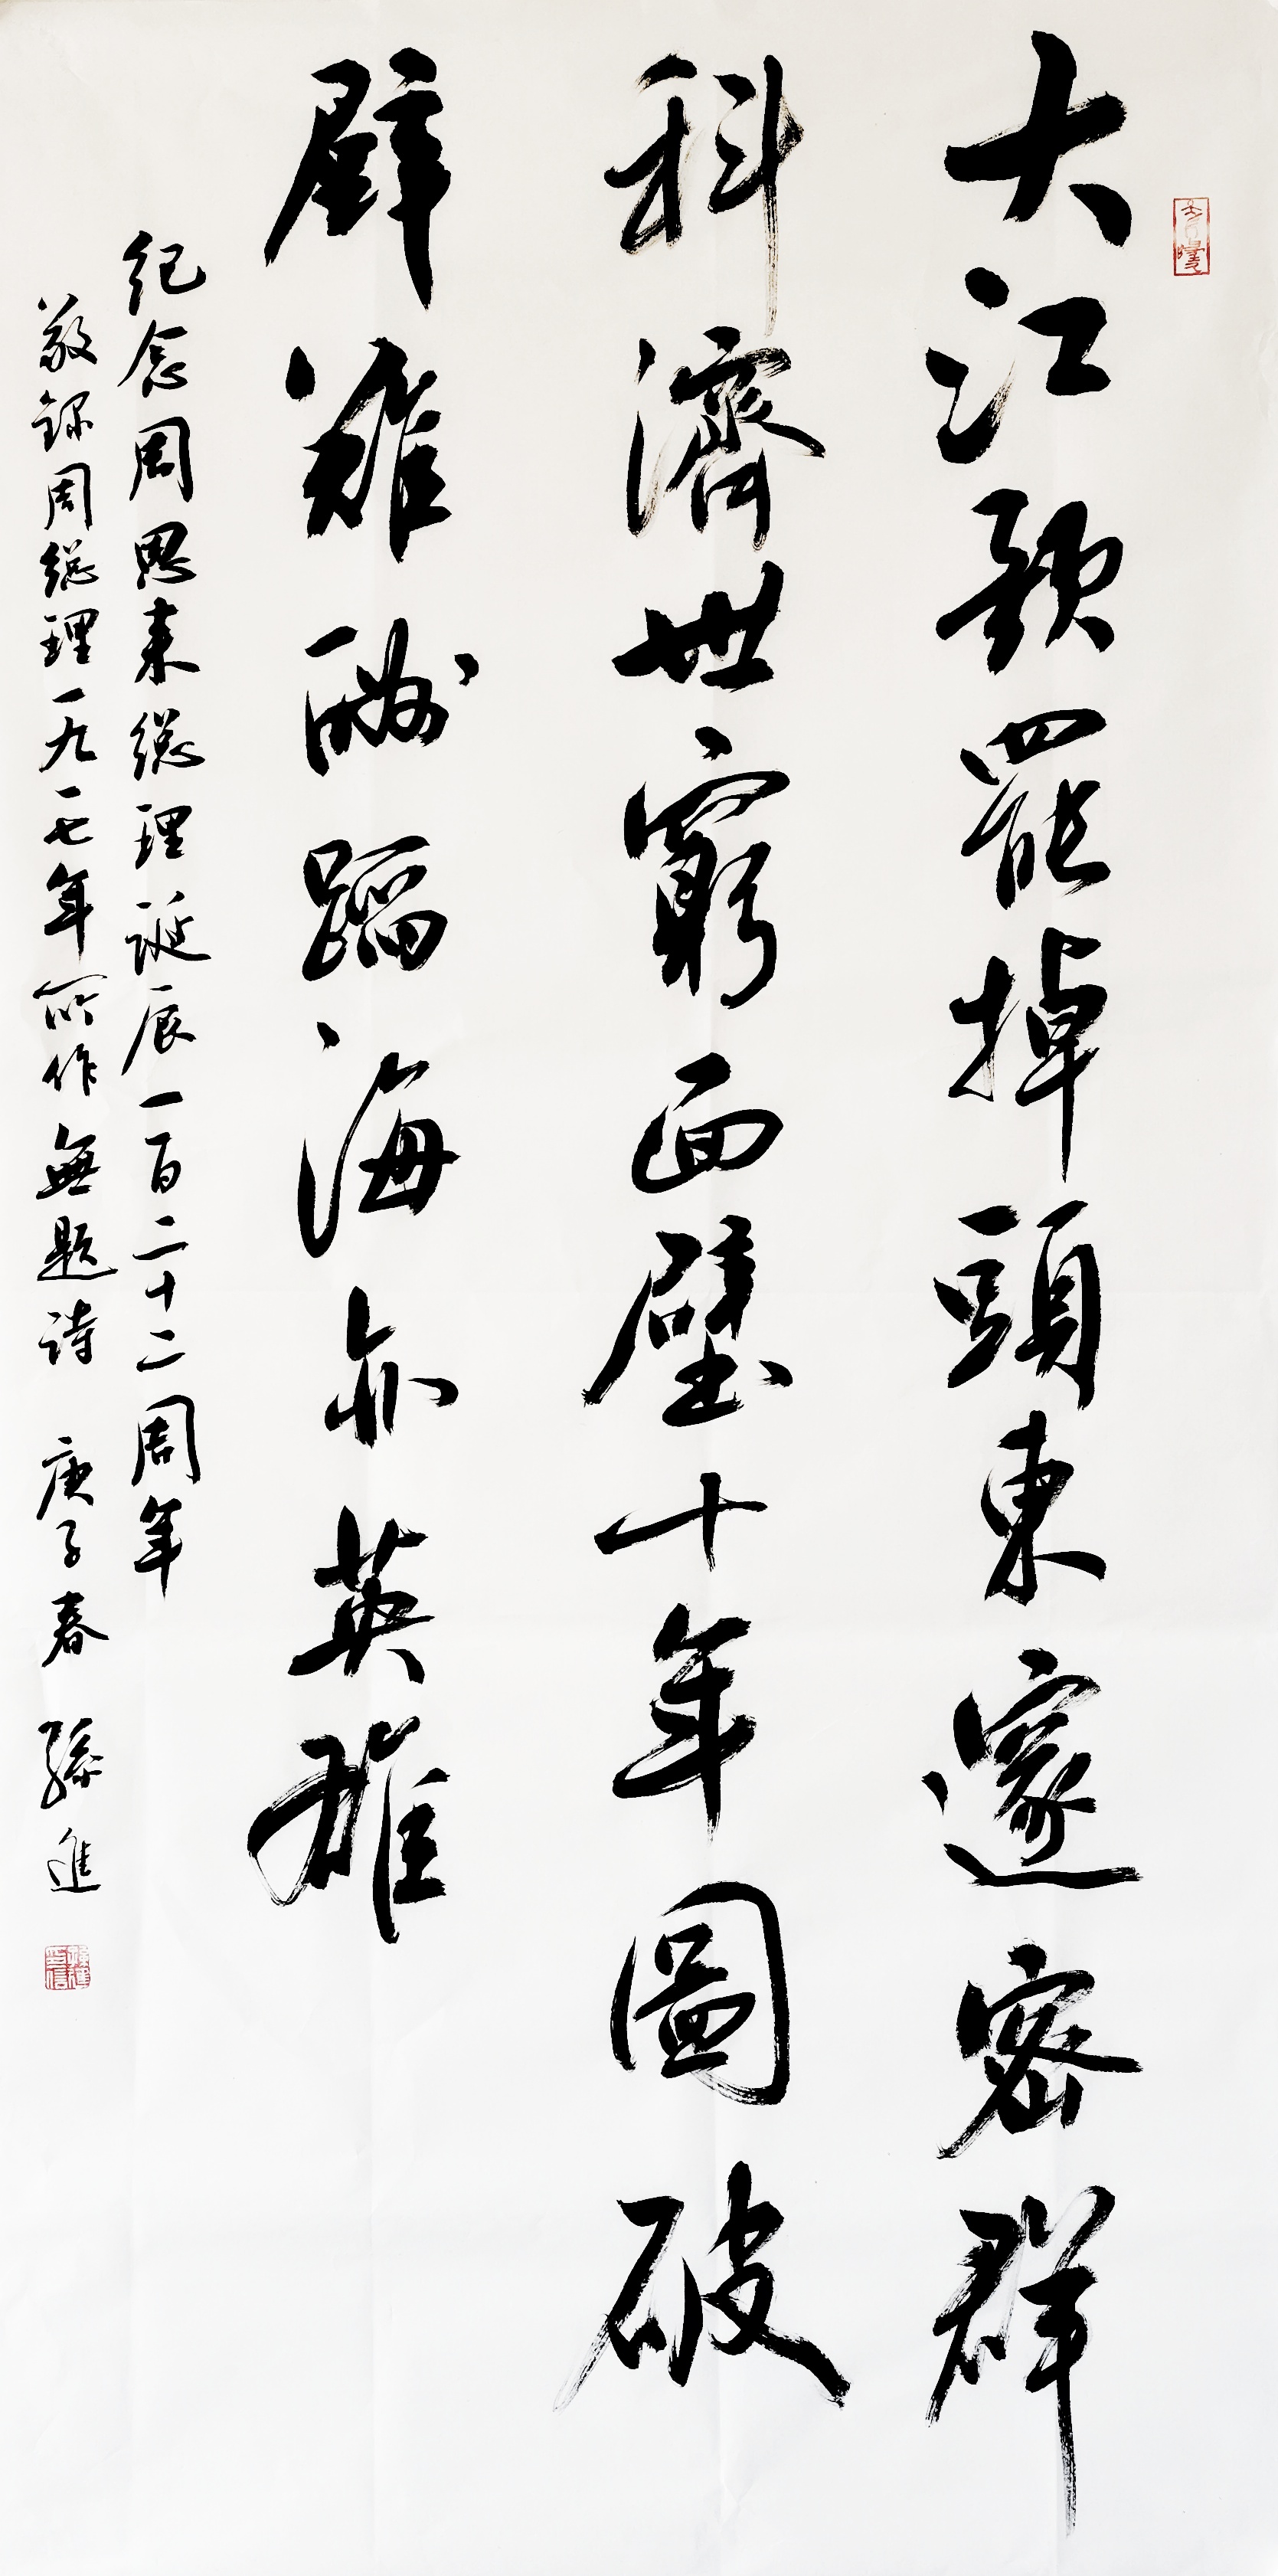 大江歌罷掉頭東邃密群
科濟世窮面壁十年圖破
壁難酬蹈海亦英雄
紀念周恩来總理誕辰一百二十二周年
敬錄周總理一九一七年所作無題詩 庚子春 孫進